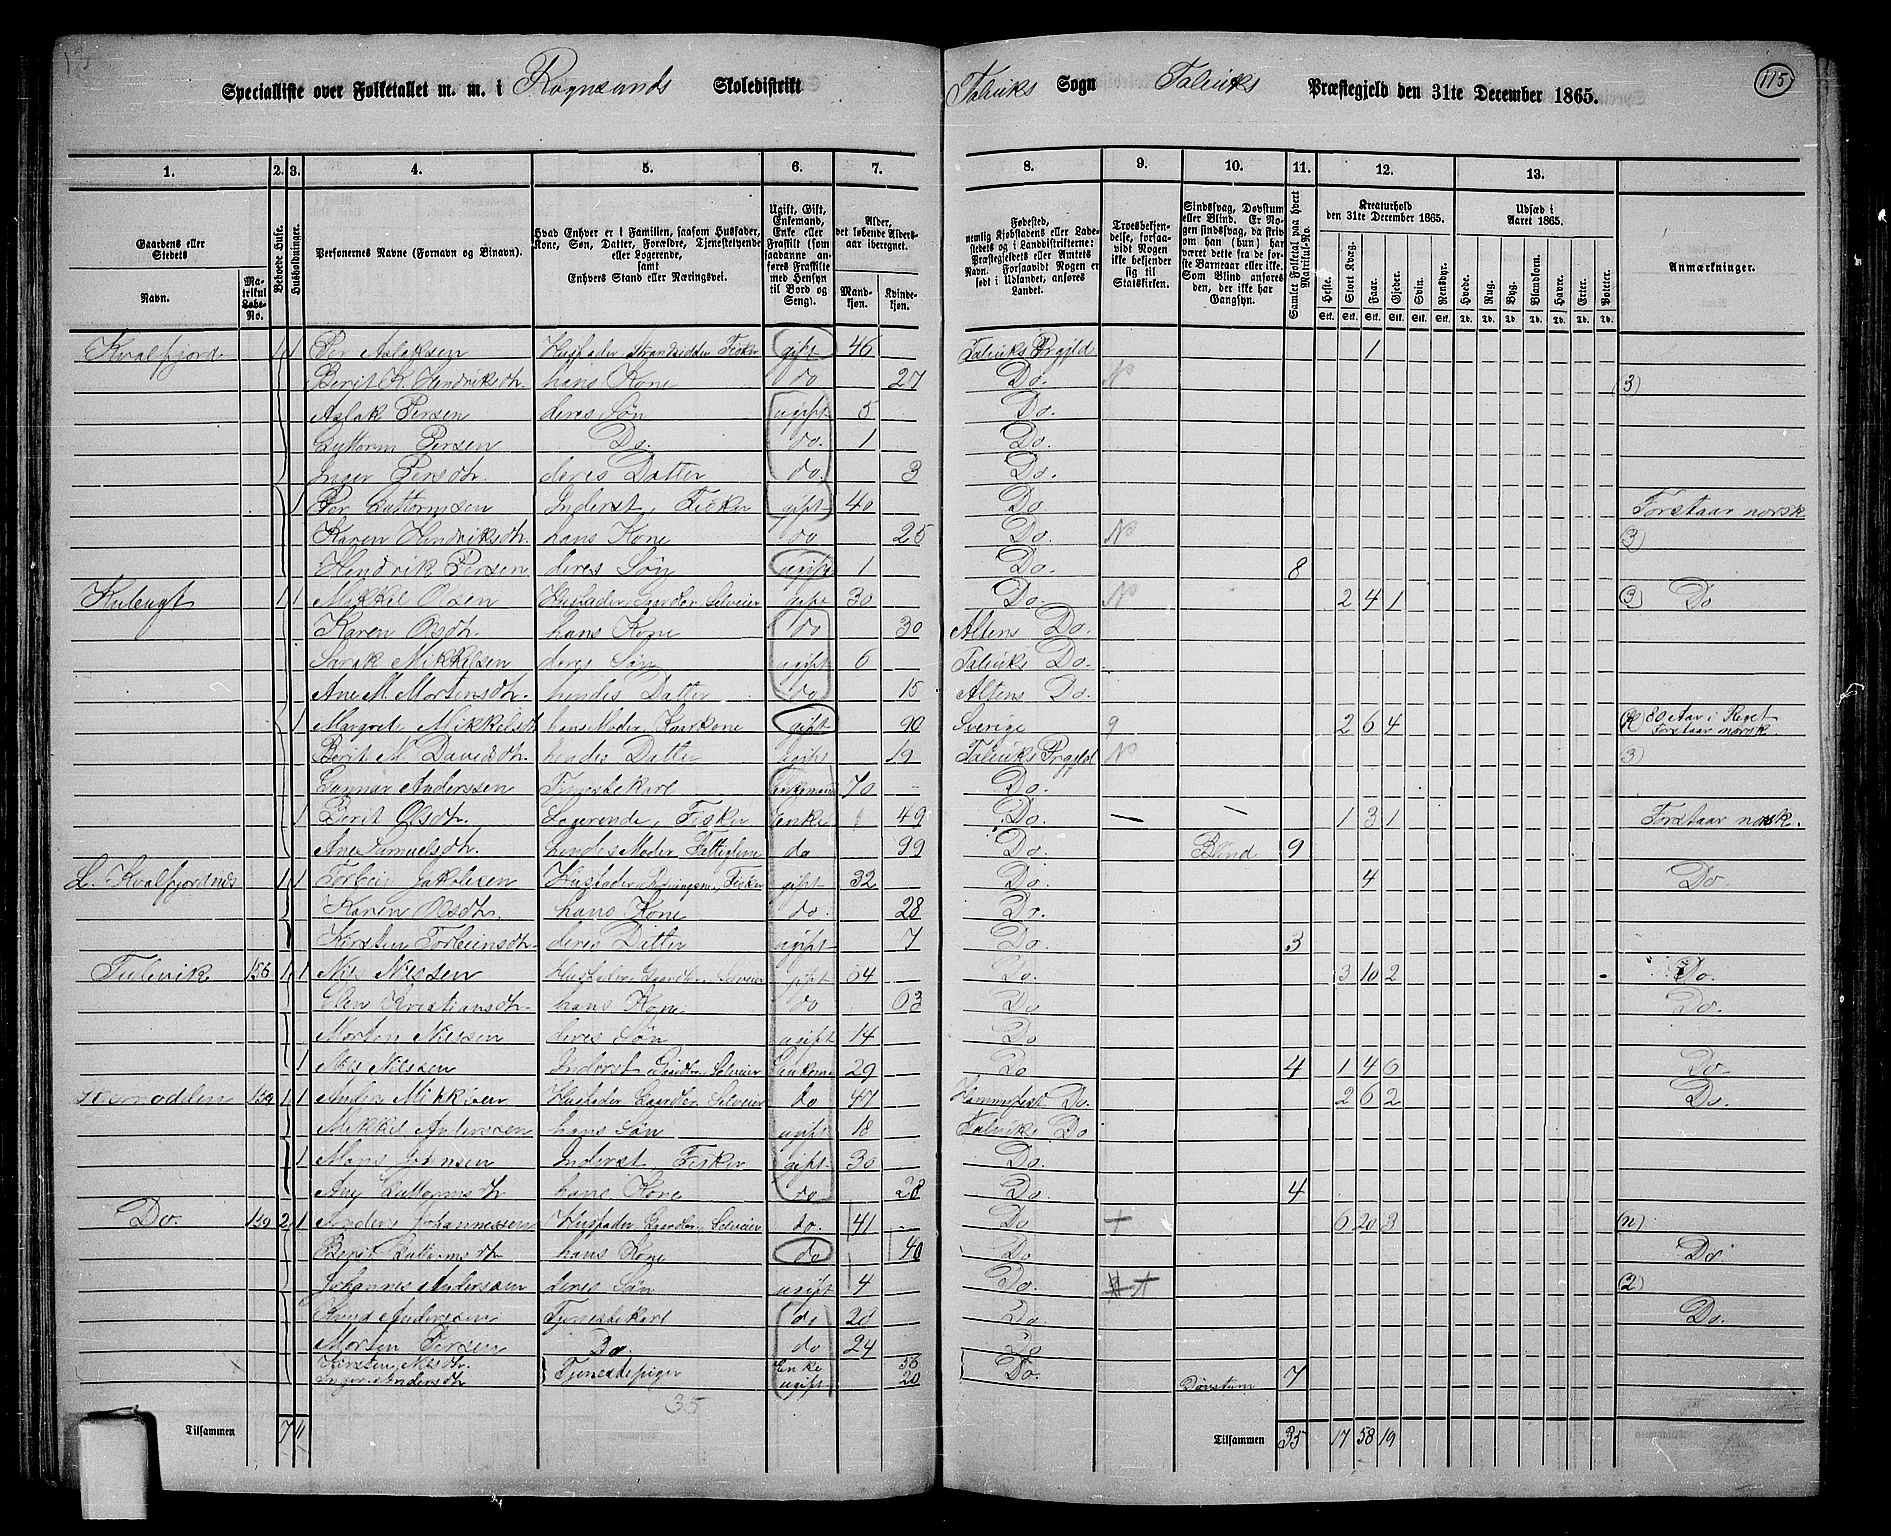 115
Specialliste over Folketallet m. m. i Rognsunds Skoledistrikt Talviks Sogn Talviks Præstegjeld den 31te December 1865.
1. 2. 3. 4. 5. 6. 7. 8. 9. 10. 11. 12. 13.
Gaardens eller Stedets Navn. Matrikul Løbe-No. Beboede Huse. Husholdninger. Personernes Navne (Fornavn og Binavn).
Hvad Enhver er i Familien, saasom Husfader, Kone, Søn, Datter, Forældre, Tjenestetyende eller Logerende, samt Enhvers Stand eller Næringsvei.
Ugift, Gift, Enkemand, Enke eller Fraskilt (som saadanne anføres Fraskilte med Hensyn til Bord og Seng).
Alder, det løbende Aldersaar iberegnet. Mandkjøn. Kvindekjøn.
Fødested, nemlig Kjøbstadens eller Ladestedets og i Landdistrikterne: Præstegjeldets eller Amtets Navn. Forsaavidt Nogen er født i Udlandet, anføres Landet.
Troesbekjendelse, forsaavidt Nogen ikke bekjender sig til Statskirken.
Sindssvag, Døvstum eller Blind. Er Nogen sindssvag, da skrives om han (hun) har været dette fra de første Barneaar eller ikke. Som Blind anføres den, der ikke har Gangsyn.
Samlet Folketal paa hvert Matrikul-No.
Kreaturhold den 31te December 1865. Heste. Stort Kvæg. Faar. Gjeder. Svin. Rensdyr.
Udsæd i Aaret 1865. Hvede. Rug. Byg. Blandkorn. Havre. Erter. Poteter.
Anmærkninger.
Kvalfjord 1 1 Per Aslaksen Husfader Strandsidder Fisker gift 46 Talviks Prgjld 1
Berit K. Hendriksdtr. hans Kone do 27 Do. (3)
Aslak Persen deres Søn ugift 5 Do.
Guttorm Persen Do. do. 1 Do.
Inger Persdtr. deres Datter do. 3 Do.
1 Per Guttormsen Inderst, Fisker gift 40 Do Forstaar norsk
Karen Hendriksdtr. hans Kone do 25 Do. 3)
Hendrik Persen deres Søn ugift 1 Do. 8
1 1 Mikkel Olsen Husfader, Gaardbr. Selveier gift 30 Do. 2 4 1 3) Do
Karen Olsdtr. hans Kone do 30 Altens Do.
Mikkelsen deres Søn ugift 6 Talviks Do.
Ane M. Mortensdtr. hendes Datter do 15 Altens Do.
1 Margret Mikkelsdtr hans Moder, Kaarkone gift 90 Sverige 9 2 6 4 80 Aar i Riget Forstaar norsk
Berit M. Davidsdtr. hendes Datter ugift 19 Talviks Prgjld 3)
Gunnar Anderssen Tjenestekarl Enkemand 70 Do.
1 Berit Olsdtr. Logerende, Fisker Enke 49 Do. 1 3 1 Forstaar norsk.
Ane Samuelsdtr. hendes Moder Fattiglem do 99 Do. Blind 9
L. Kvalfjordnæs 1 1 Torbein Jakobsen Husfader, Fisker gift 32 Do. 4 Do.
Karen Olsdtr. hans Kone do. 28 Do.
Kirsten Torbeinsdtr. deres Ditter ugift 7 Do. 3
156 1 1 Nils Nilssen Husfader Gaardbr. Selveier gift 64 Do. 3 10 2 Do.
Kristiansdtr. hans Kone. do 63 Do Do.
Morten Nilssen deres Søn ugift 14 Do
1 Nils Nilssen Inderst Gaardbr. Selveier Enkem. 29 Do 4 1 4 6 Do.
159 1 1 Anders Mikkelsen Husfader Gaardbr. Selveier do 47 Hammerfest Do. 2 6 2 Do.
Mikkel Anderssen hans Søn ugift 18 Talviks Do
1 Mons Johnsen Inderst, Fisker gift 30 Do.
Guttormsdtr hans Kone do 28 Do 4
Do. 159 2 1 Anders Johannessen Husfader Gaardbr. Selveier do. 41 Do + 6 20 3 (n)
Berit Guttormsdtr hans Kone do 40 Do Do.
Johannes Anderssen deres Søn ugift 4 Do. + (2)
Knud Anderssen Tjenestekarl do 20 Do Do.
Morten Persen Do. do 24 Do
Kirsten Nilsdtr. Enke 56
Tjenestepiger Do. 7
Inger Andersdtr ugift 20 Døvstum
35
Tilsammen 7 11 Tilsammen 35 17 58 19